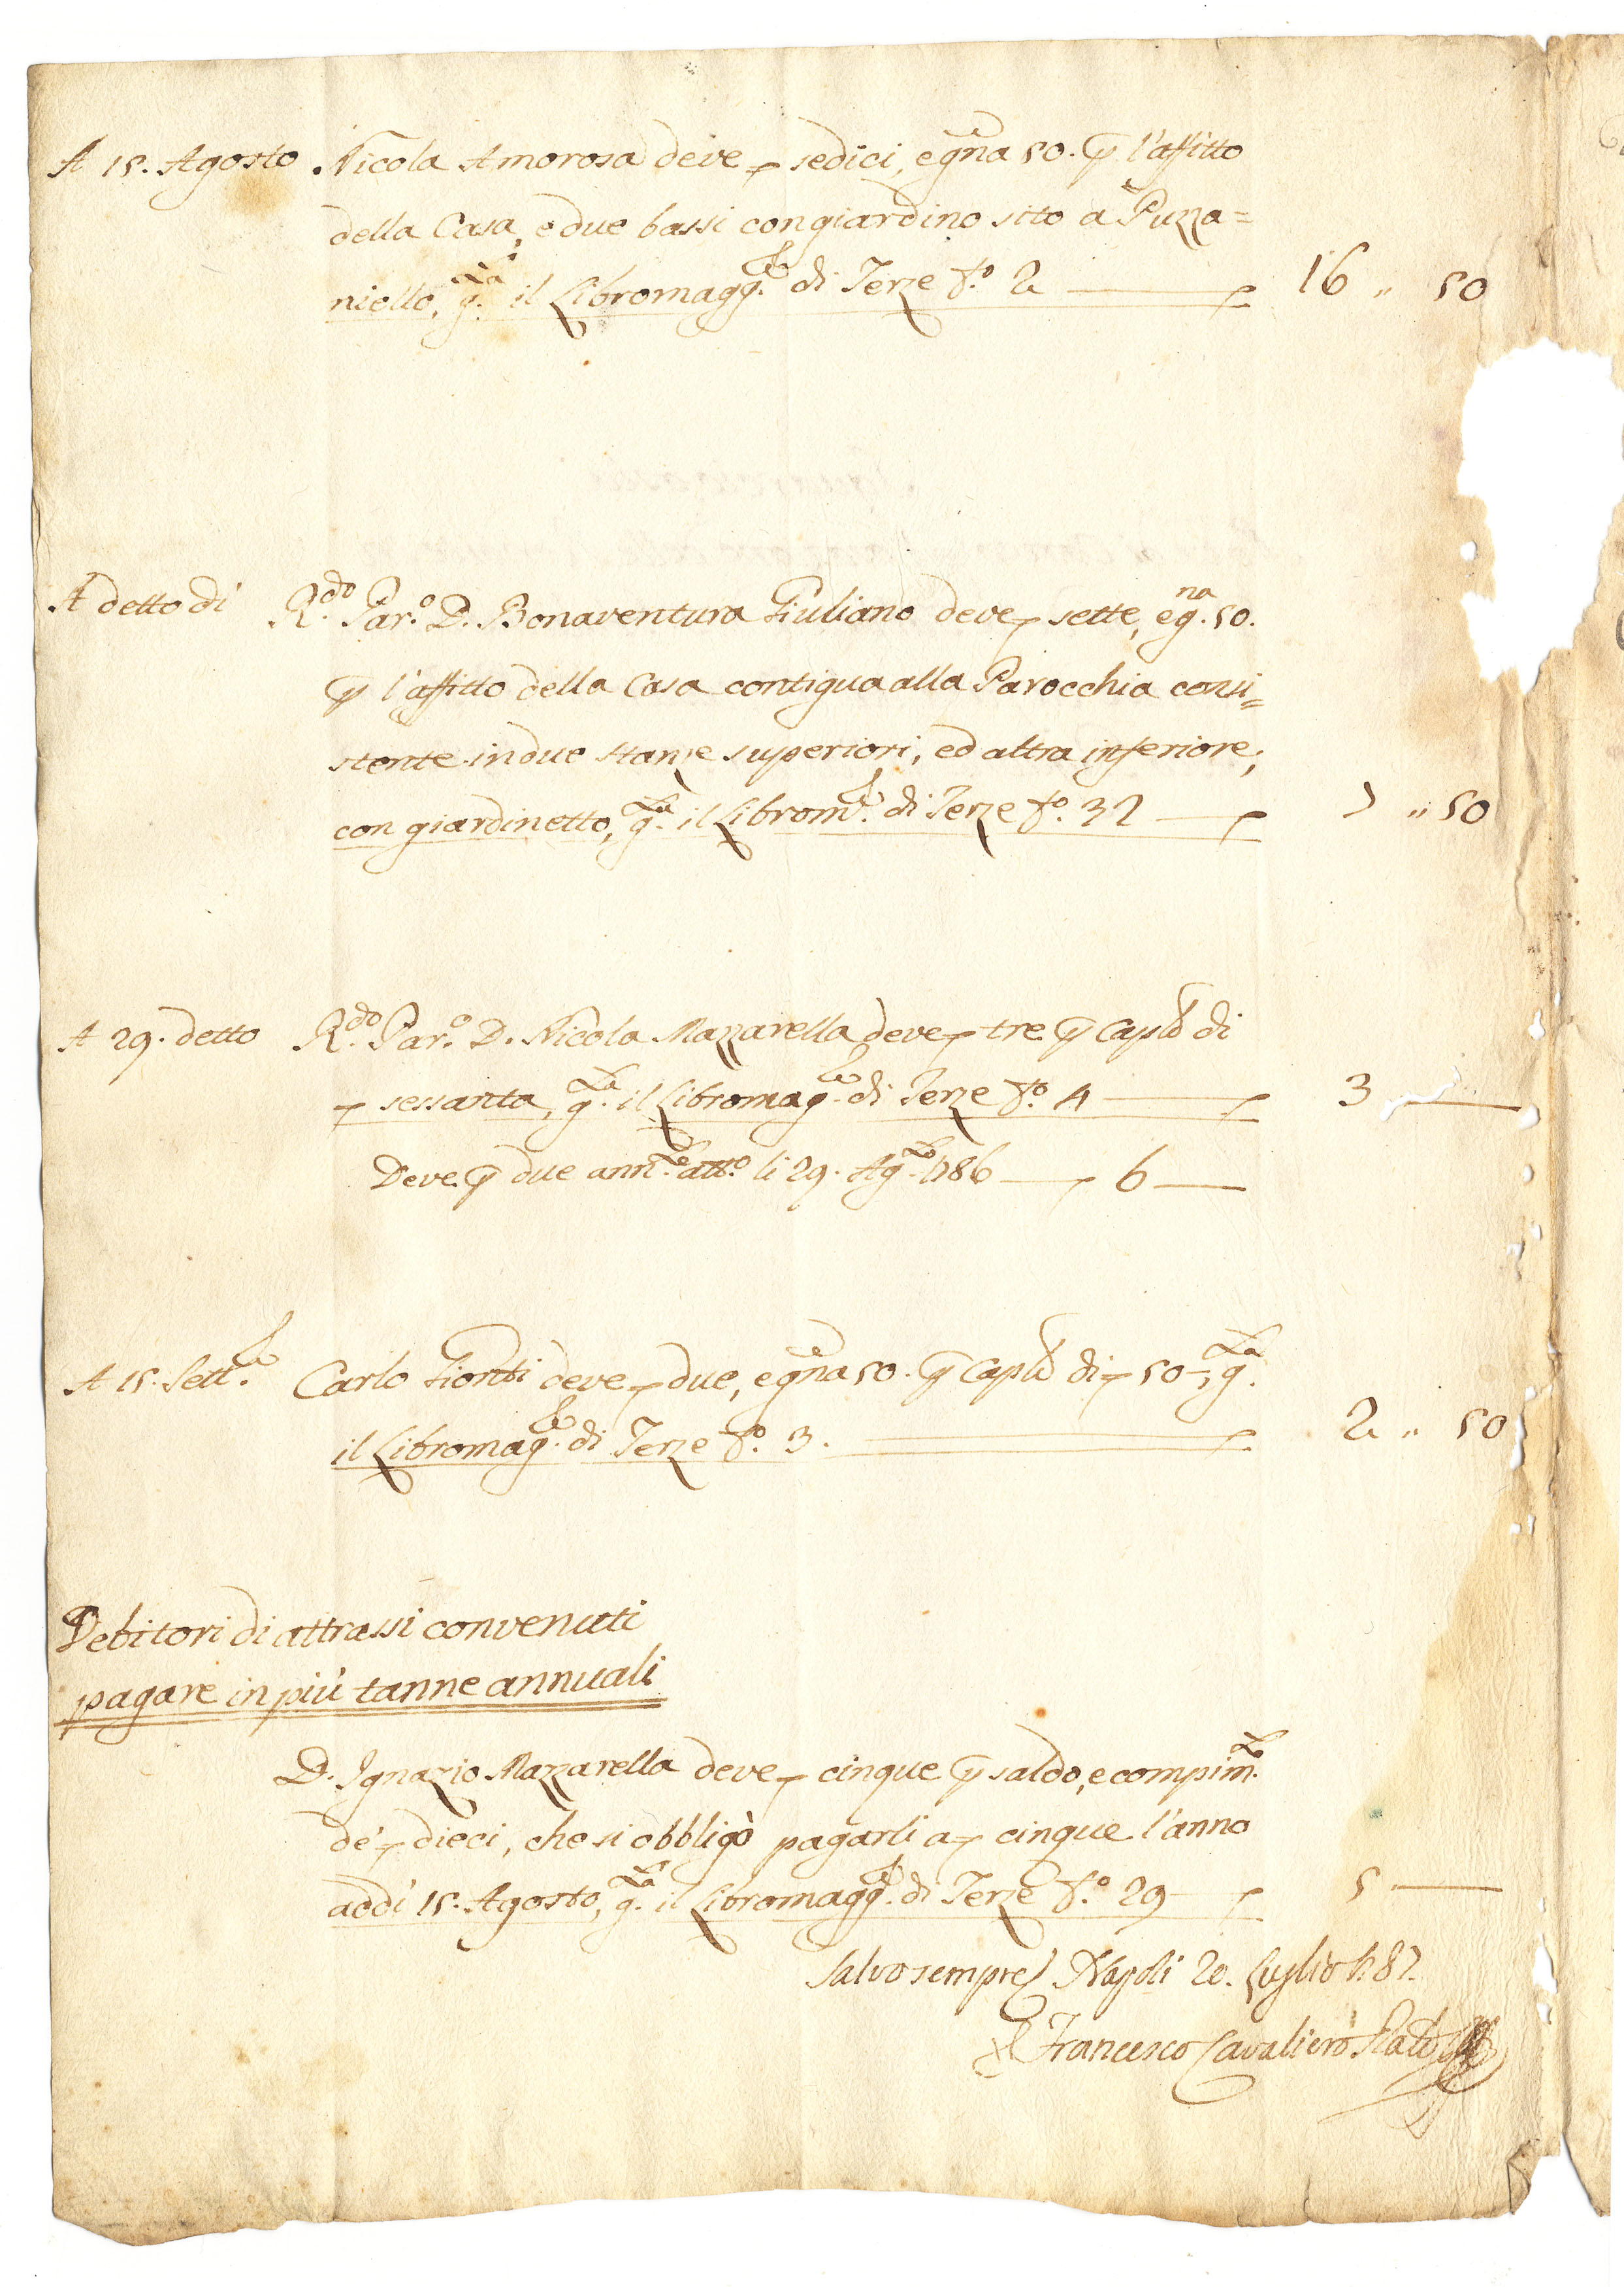 A 15. Agosto. Nicola Amorosa deve d. sedici, e gna 50. p l'affitto
della Casa, e due bassi con giardino sito a Puzza=
niello, g.ta il Libro magg.re di Terze f.o 2 — d. 16 " 50
A detto dì R.do Par.o D. Bonaventura Giuliano deve d. sette, e g.na 50.
p l'affitto della Casa contigua alla Parocchia consi=
stente in due stanze superiori, ed altra inferiore,
con giardinetto, g.ta il Libro m.re di Terze f.o 32 — d. 7 " 50
A 29. detto R.do Par.o D. Nicola Mazzarella deve d. tre p Cap.le di
d. sessanta, g.ta il Libro mag.re di Terze f.o 4 — d. 3 —
Deve p due ann.te att.o li 29. Ag.to 1786 — d. 6 —
A 15. Sett.re Carlo deve d. due, e gna 50. p Cap.le di d. 50 -, g.ta
il Libro mag.re di Terze f.o 3. — d. 2 " 50
Debitori di attrassi convenuti
pagare in più tanne annuali
D. Ignazio Mazzarella deve d. cinque p saldo, e compim.to
de' d. dieci, che si obbligò pagarli a d. cinque l'anno
addì 15. Agosto, g.ta il Libro magg.re di Terze f.o 29 — d. 5 —
Salvo sempre Napoli 20. Luglio 1787.
Francesco Cavaliero